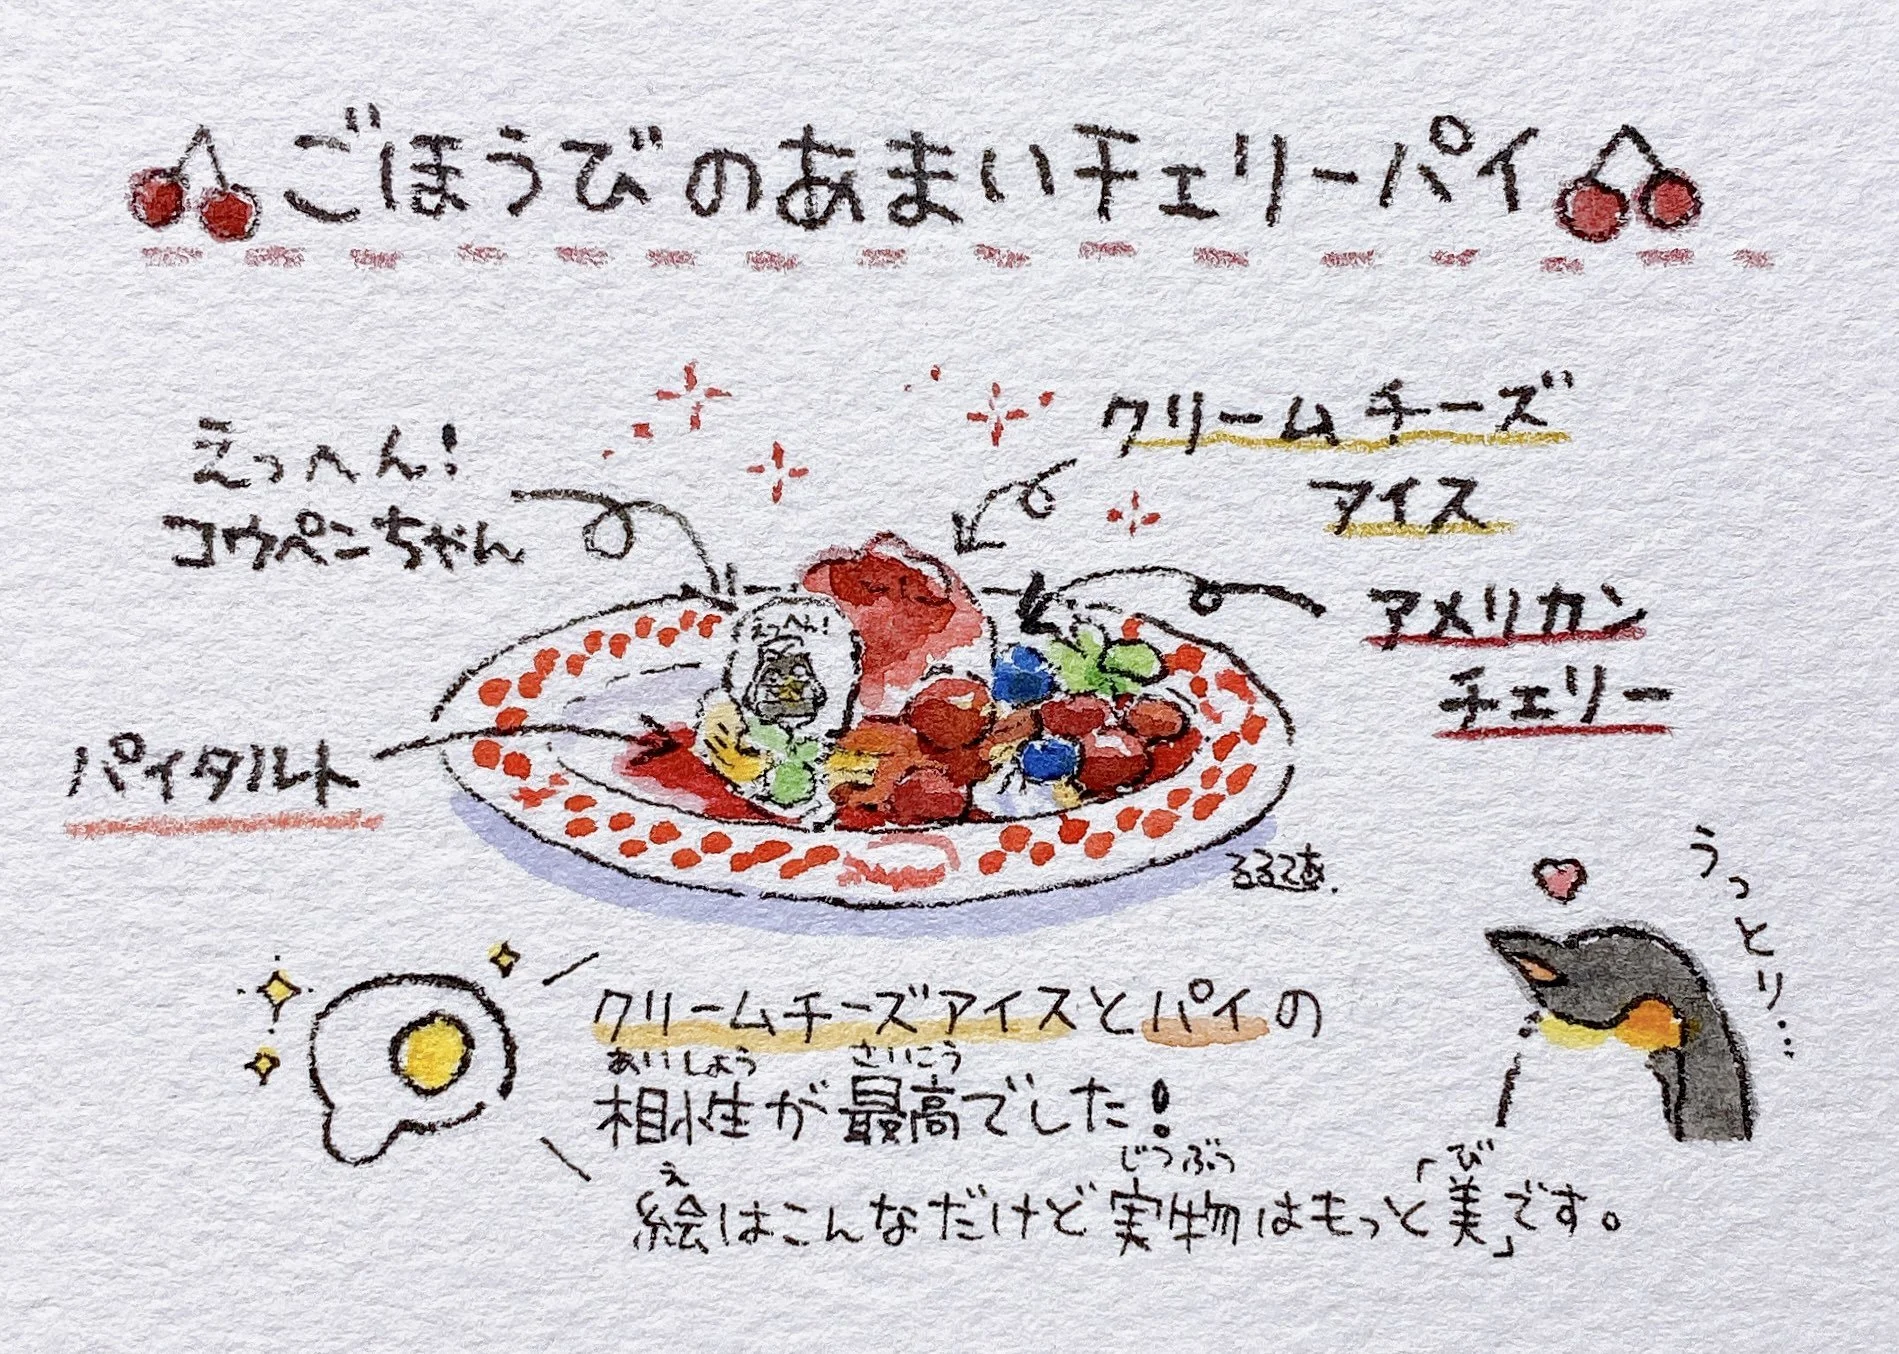 ごほうびのあまいチェリーパイ
えっへん!
コウペンちゃん
クリームチーズ
アイス
アメリカン
チェリー
えっへん!
パイタルト
るるてあ.
うっとり…
クリームチーズアイスとパイの
あいしょう さいこう
相性が最高でした!
え じつぶつ び
絵はこんなだけど実物はもっと「美」です。